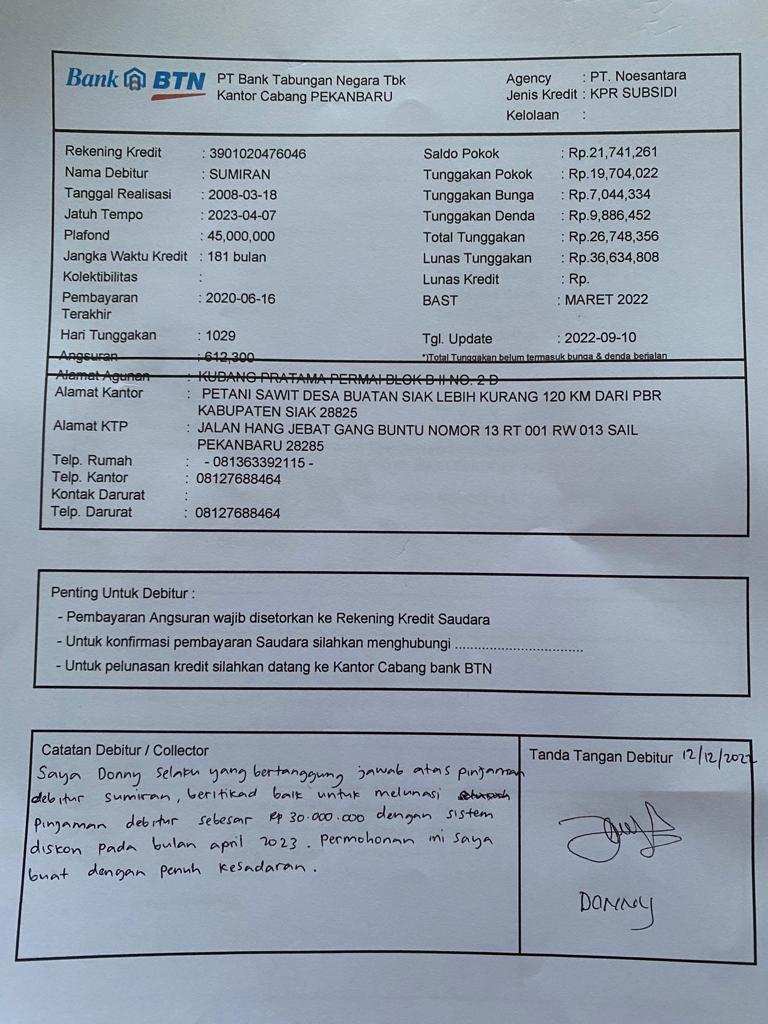 Bank BTN PT Bank Tabungan Negara Tbk
Kantor Cabang PEKANBARU
Agency : PT. Noesantara
Jenis Kredit : KPR SUBSIDI
Kelolaan :
Rekening Kredit : 3901020476046
Nama Debitur : SUMIRAN
Tanggal Realisasi : 2008-03-18
Jatuh Tempo : 2023-04-07
Plafond : 45,000,000
Jangka Waktu Kredit : 181 bulan
Kolektibilitas :
Pembayaran Terakhir : 2020-06-16
Hari Tunggakan : 1029
Angsuran : 612,300
Saldo Pokok : Rp.21,741,261
Tunggakan Pokok : Rp.19,704,022
Tunggakan Bunga : Rp.7,044,334
Tunggakan Denda : Rp.9,886,452
Total Tunggakan : Rp.26,748,356
Lunas Tunggakan : Rp.36,634,808
Lunas Kredit : Rp.
BAST : MARET 2022
Tgl. Update : 2022-09-10
*)Total Tunggakan belum termasuk bunga & denda berjalan
Alamat Agunan : KUBANG PRATAMA PERMAI BLOK B II NO. 2 D
Alamat Kantor : PETANI SAWIT DESA BUATAN SIAK LEBIH KURANG 120 KM DARI PBR
KABUPATEN SIAK 28825
Alamat KTP : JALAN HANG JEBAT GANG BUNTU NOMOR 13 RT 001 RW 013 SAIL
PEKANBARU 28285
Telp. Rumah : - 081363392115 -
Telp. Kantor : 08127688464
Kontak Darurat :
Telp. Darurat : 08127688464
Penting Untuk Debitur :
- Pembayaran Angsuran wajib disetorkan ke Rekening Kredit Saudara
- Untuk konfirmasi pembayaran Saudara silahkan menghubungi .......................................
- Untuk pelunasan kredit silahkan datang ke Kantor Cabang bank BTN
Catatan Debitur / Collector
Saya Donny selaku yang bertanggung jawab atas pinjaman
debitur sumiran, beritikad baik untuk melunasi
pinjaman debitur sebesar Rp 30.000.000 dengan sistem
diskon pada bulan april 2023. Permohonan ini saya
buat dengan penuh kesadaran.
Tanda Tangan Debitur 12/12/2022
DONNY